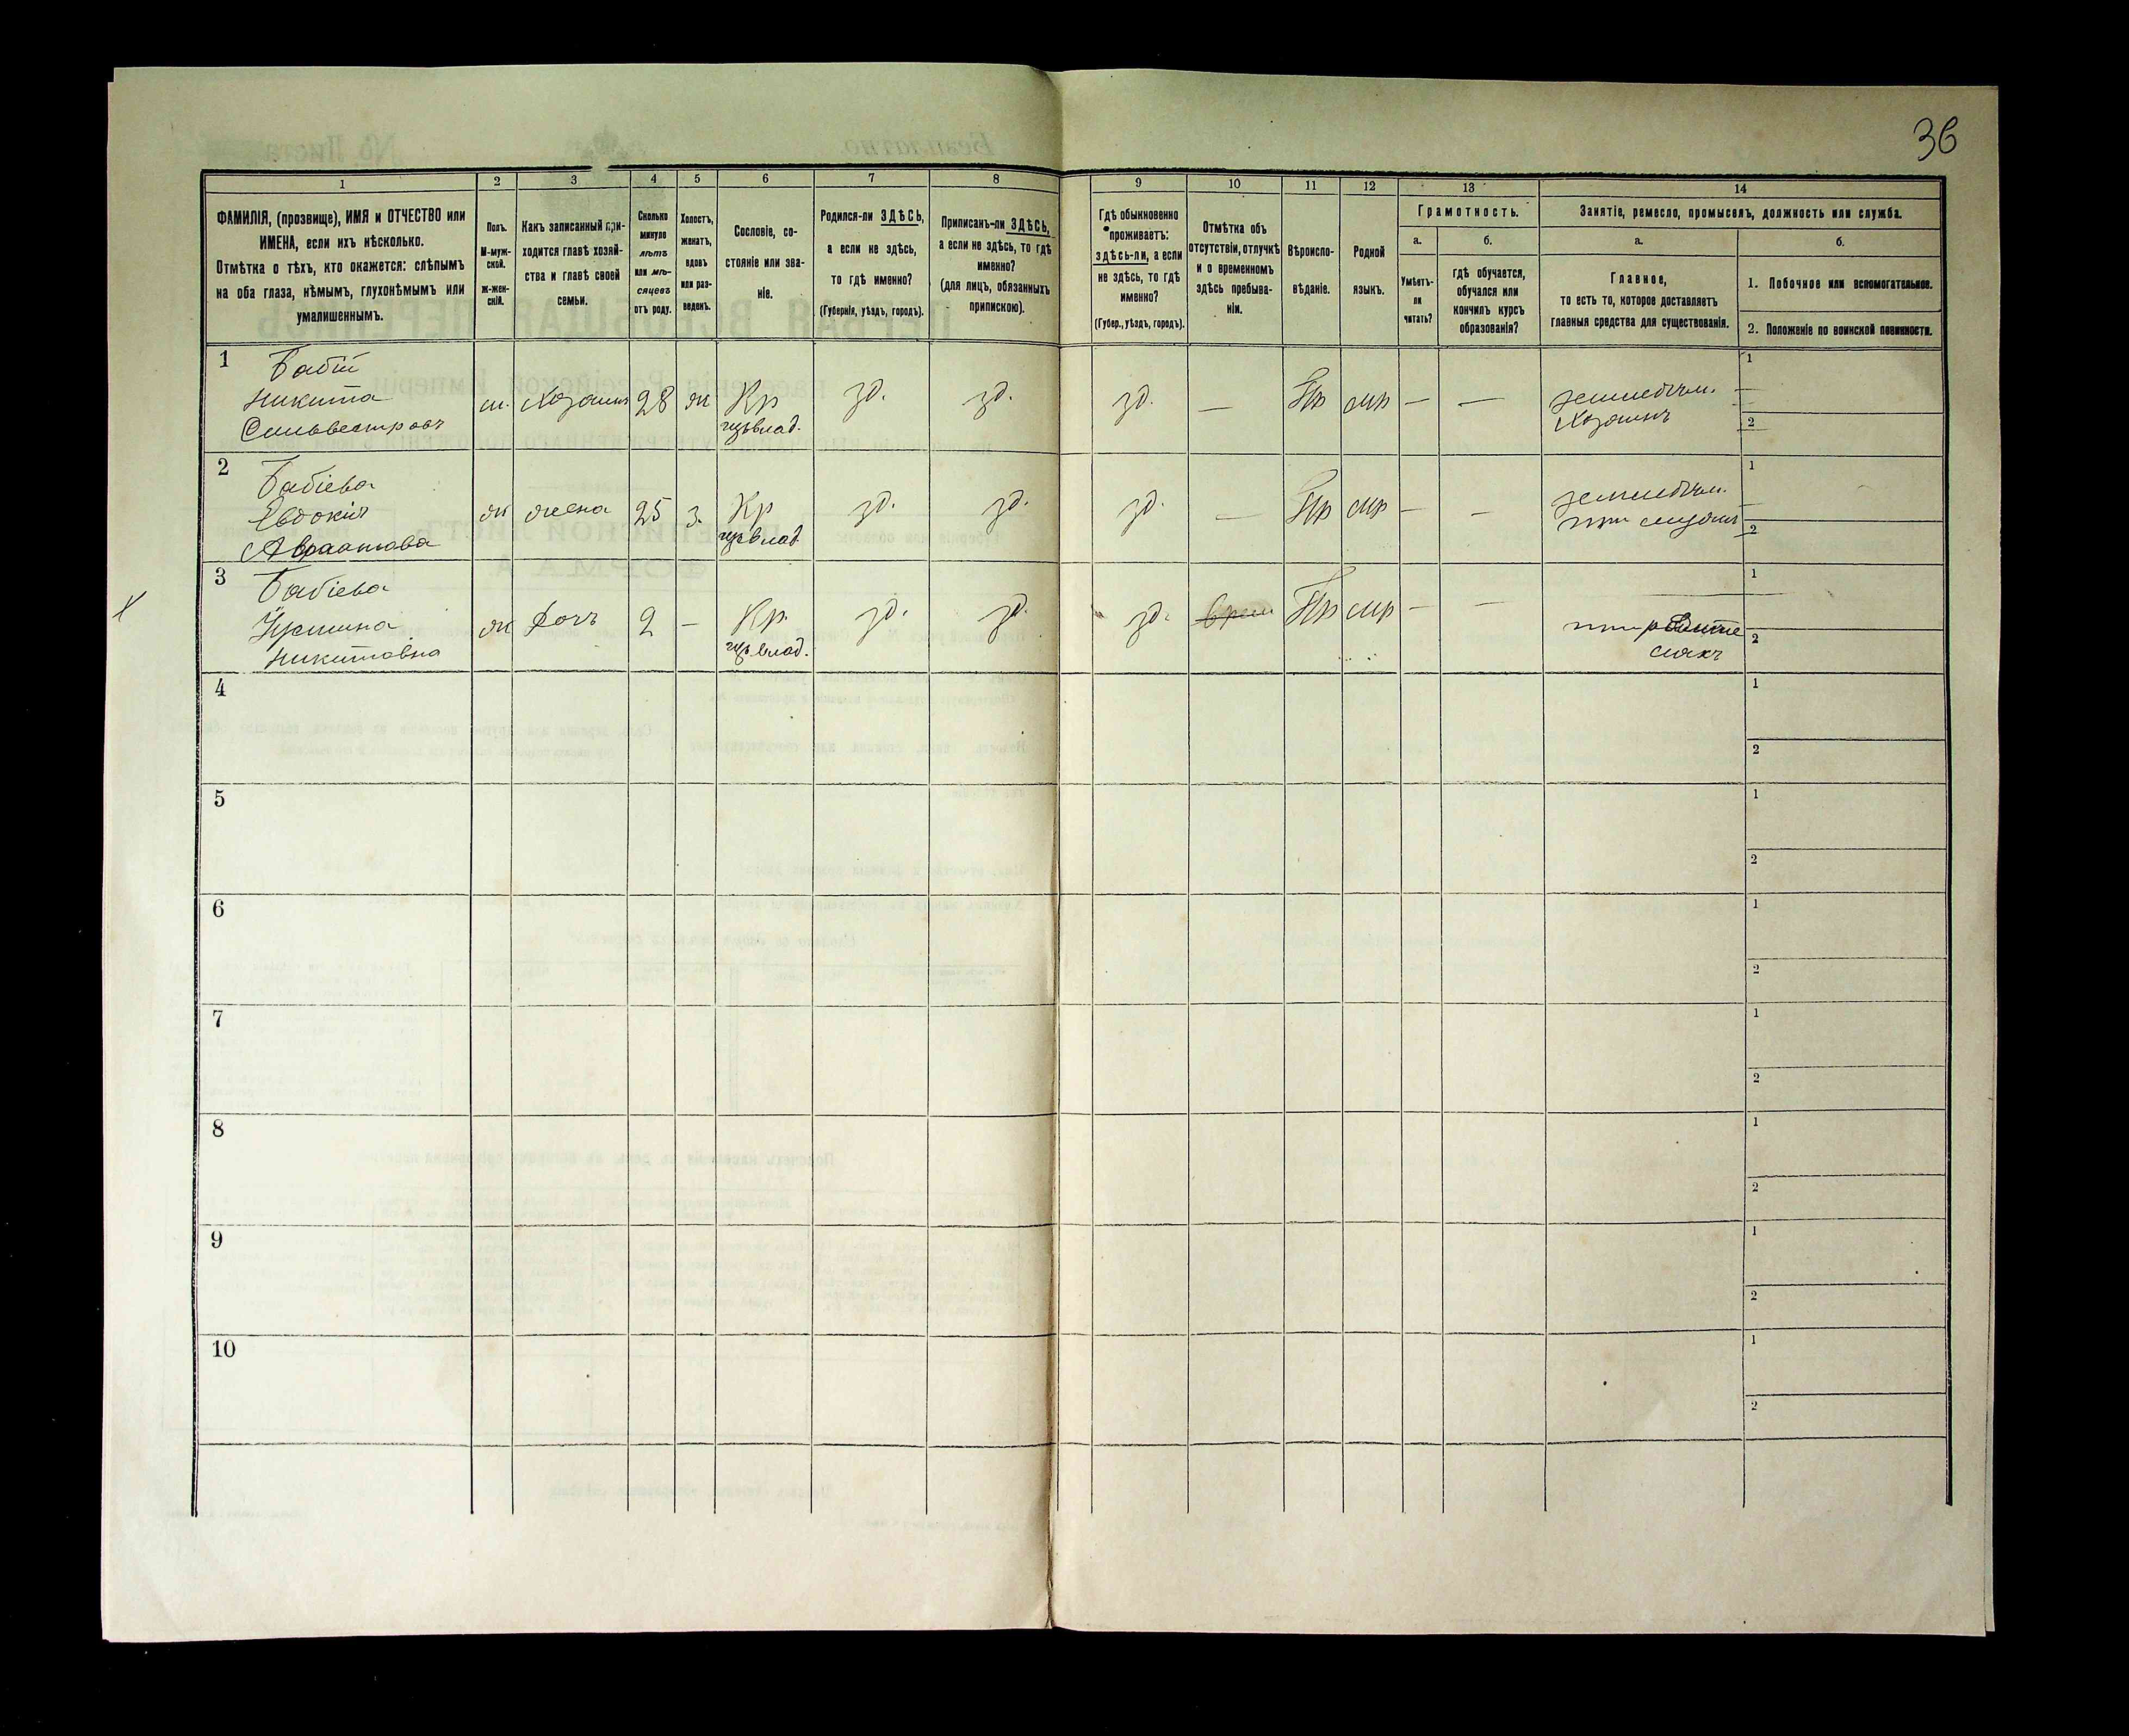 36
1
2
3
4
5
6
7
8
9
10
11
12
13
14
ФАМИЛІЯ, (прозвище), ИМЯ и ОТЧЕСТВО или
ИМЕНА, если ихъ нѣсколько.
Отмѣтка о тѣхъ, кто окажется: слѣпымъ
на оба глаза, нѣмымъ, глухонѣмымъ или
умалишеннымъ.
Полъ.
М-муж-
ской.
ж-жен-
скій.
Какъ записанный при-
ходится главѣ хозяй-
ства и главѣ своей
семьи.
Сколько
минуло
лѣтъ
или мѣ-
сяцевъ
отъ роду.
Холостъ,
женатъ,
вдовъ
или раз-
веденъ.
Сословіе, со-
стояніе или зва-
ніе.
Родился-ли ЗДѢСЬ,
а если не здѣсь,
то гдѣ именно?
(Губернія, уѣздъ, городъ).
Приписанъ-ли ЗДѢСЬ,
а если не здѣсь, то гдѣ
именно?
(для лицъ, обязанныхъ
припискою).
Гдѣ обыкновенно
проживаетъ:
здѣсь-ли, а если
не здѣсь, то гдѣ
именно?
(Губер., уѣздъ, городъ).
Отмѣтка объ
отсутствіи, отлучкѣ
и о временномъ
здѣсь пребыва-
ніи.
Вѣроиспо-
вѣданіе.
Родной
языкъ.
Грамотность.
а.
Умѣетъ-
ли
читать?
б.
гдѣ обучается,
обучался или
кончилъ курсъ
образованія?
Занятіе, ремесло, промыселъ, должность или служба.
а.
Главное,
то есть то, которое доставляетъ
главныя средства для существованія.
б.
1. Побочное или вспомогательное.
2. Положеніе по воинской повинности.
1
Бабій
Никита
Сильвестровъ
м. Хозяинъ 28 ж Кр зд. зд. зд. — Пр мр — —
влад.
земледѣл.
Хозяинъ
1
2
2
Бабіева
Евдокія
Авраамова
ж жена 25 з. Кр зд. зд. зд. — Пр мр — —
влад.
земледѣл.
при мужѣ
1
2
3
Бабіева
Устина
Никитовна
ж Дочь 2 — Кр. зд. зд. зд. Пр мр — —
влад.
при родите
ляхъ
1
2
4
1
2
5
1
2
6
1
2
7
1
2
8
1
2
9
1
2
10
1
2